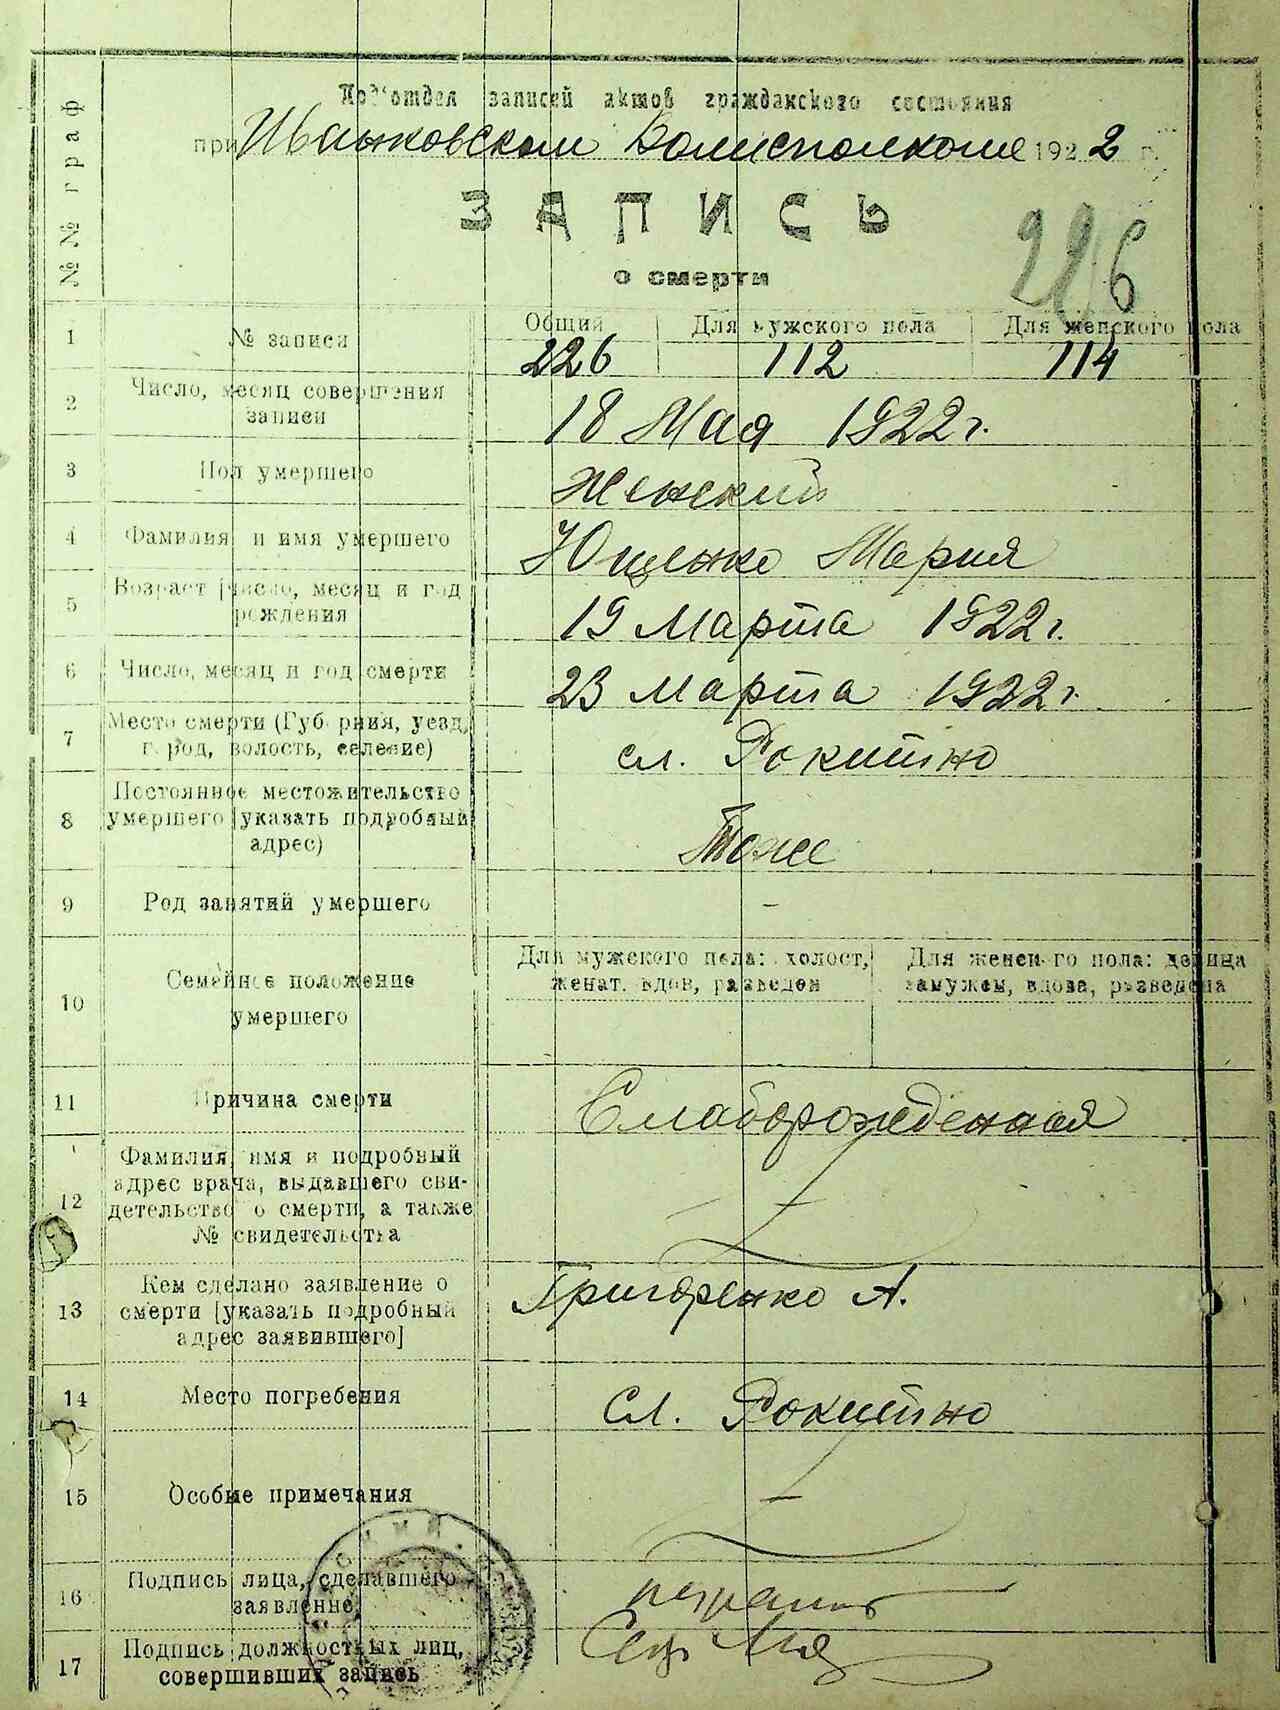 № № граф
Под'отдел записей актов гражданского состояния
при Иваньковском Волисполкоме 1922 г.
ЗАПИСЬ
о смерти
226
1 № записи Общий Для мужского пола Для женского пола
226 112 114
2 Число, месяц совершения
записи
18 Мая 1922 г.
3 Пол умершего Женский
4 Фамилия и имя умершего Ющенко Мария
5 Возраст [число, месяц и год
рождения
19 Марта 1922 г.
6 Число, месяц и год смерти 23 Марта 1922 г.
7 Место смерти (Губерния, уезд,
город, волость, селение)
сл. Рокитно
8 Постоянное местожительство
умершего [указать подробный
адрес)
Тоже
9 Род занятий умершего -
10 Семейное положение
умершего
Для мужского пола: холост,
женат, вдов, разведен
Для женского пола: девица
замужем, вдова, разведена
11 Причина смерти Слаборожденная
12 Фамилия, имя и подробный
адрес врача, выдавшего сви-
детельство о смерти, а также
№ свидетельства
13 Кем сделано заявление о
смерти [указать подробный
адрес заявившего]
Григоренко А.
14 Место погребения сл. Рокитно
15 Особые примечания
16 Подпись лица, сделавшего
заявление
17 Подпись должностных лиц,
совершивших запись